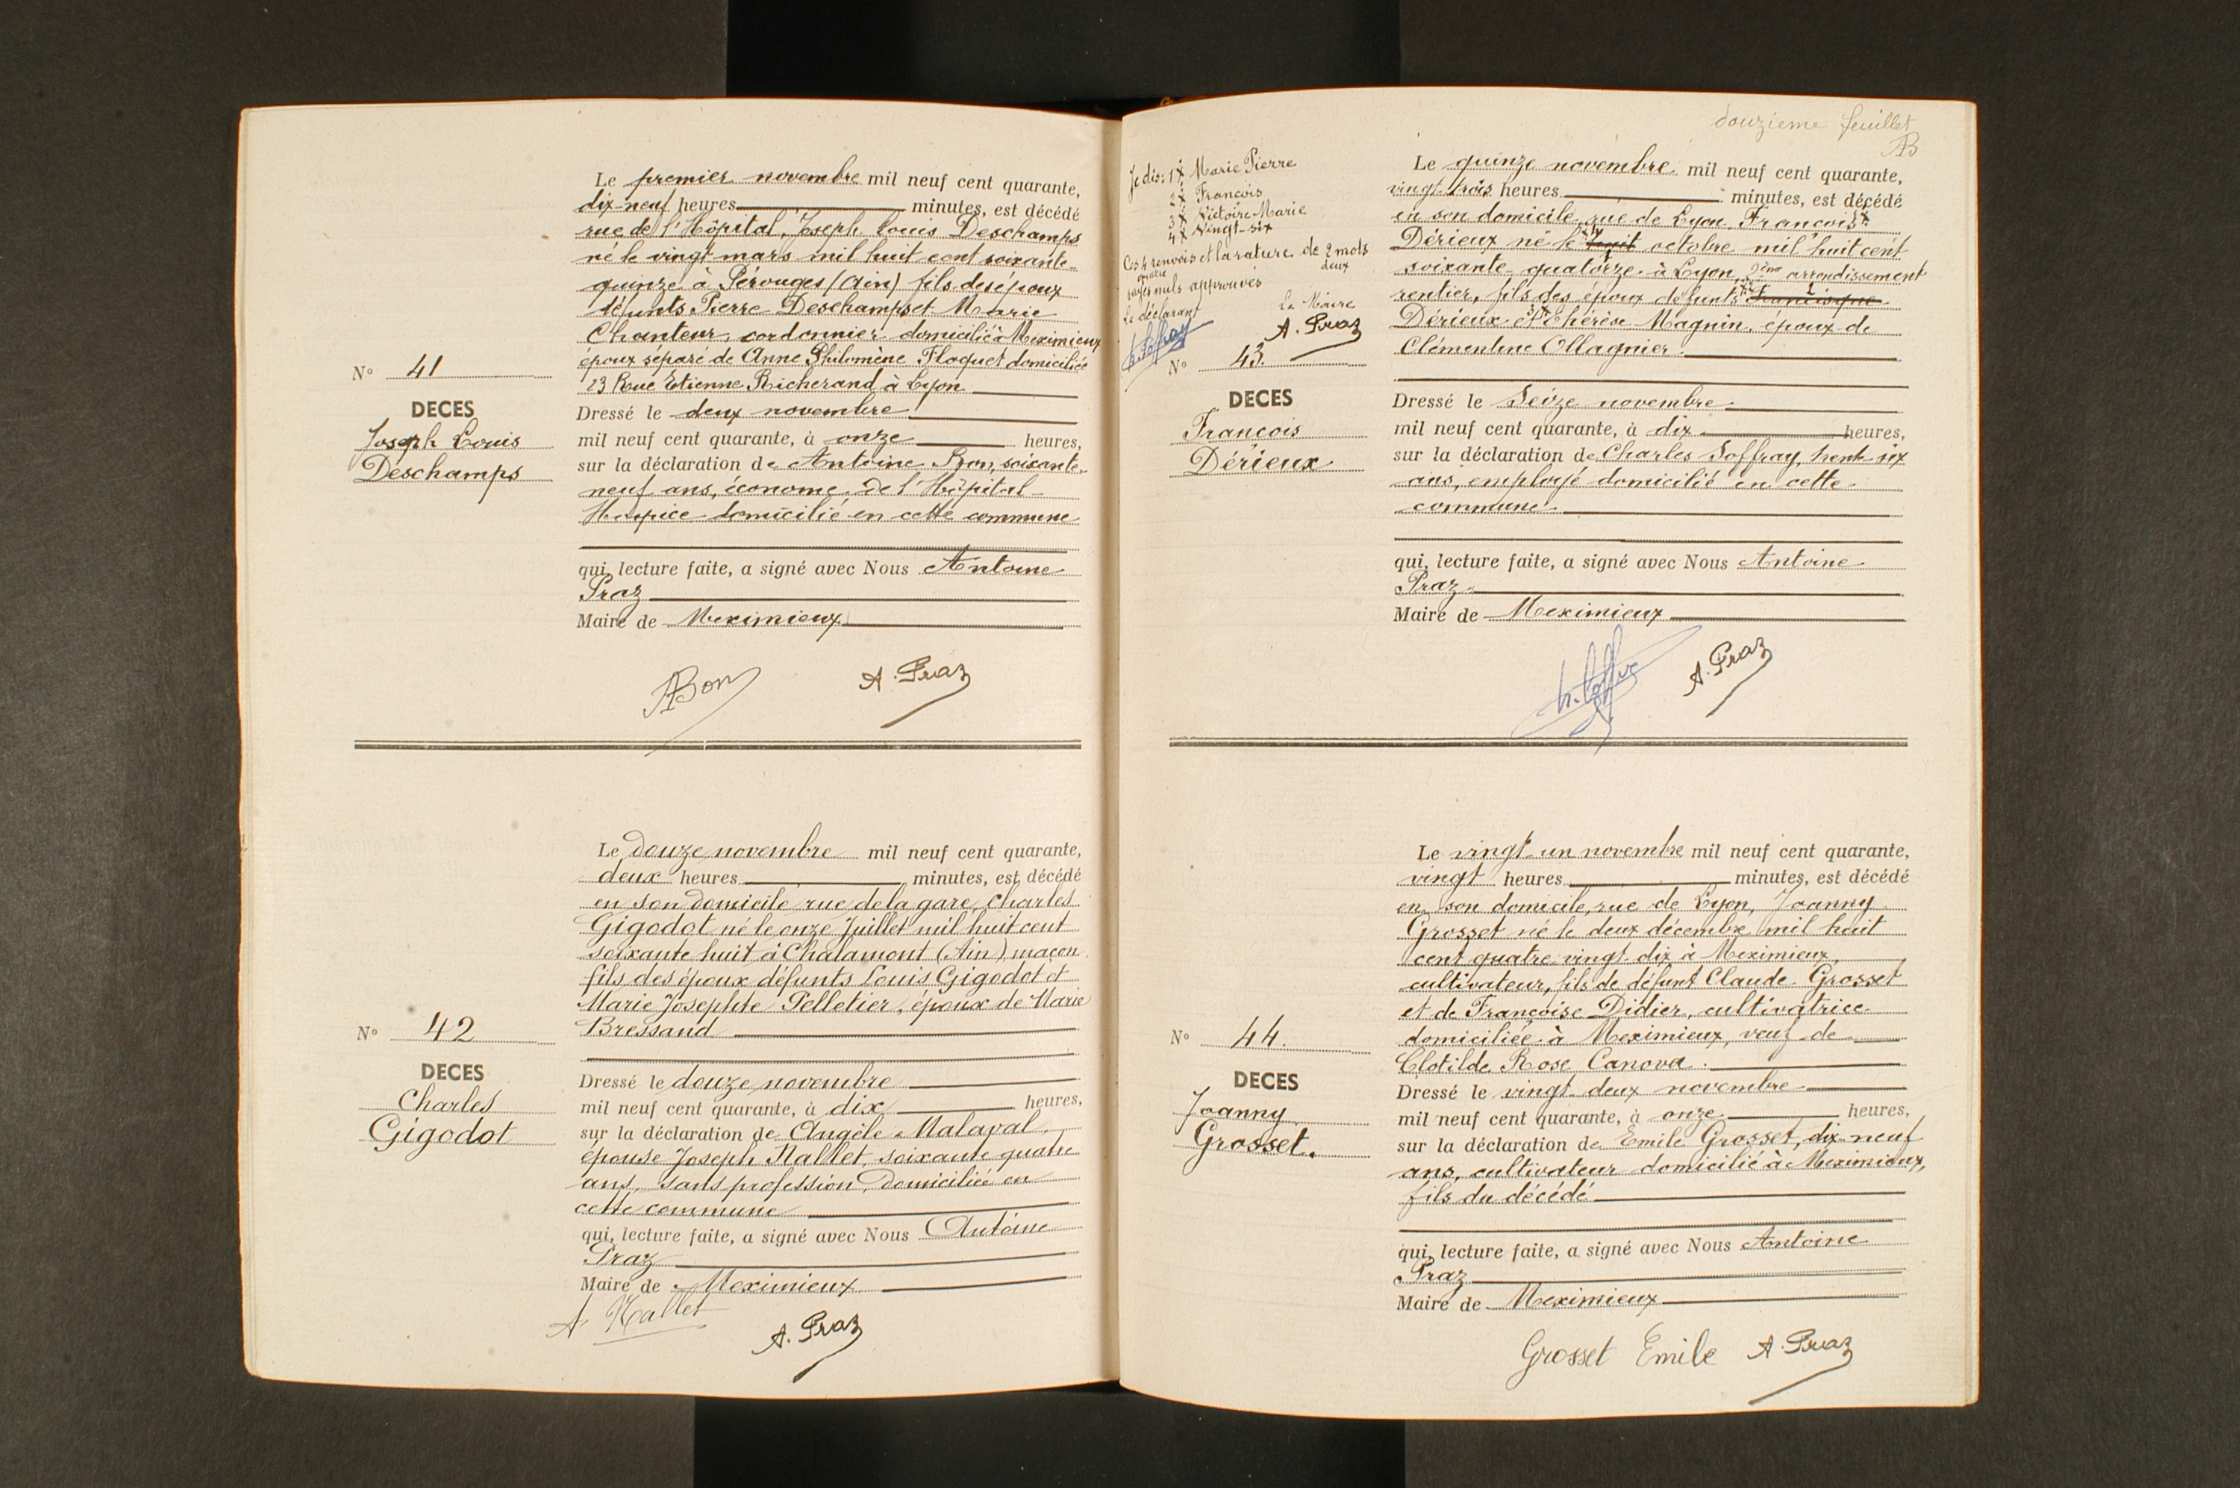 Le premier novembre mil neuf cent quarante,
dix-neuf heures minutes, est décédé
rue de l'Hôpital, Joseph Louis Deschamps
né le vingt mars mil huit cent soixante-
quinze à Pérouges (Ain) fils des époux
défunts Pierre Deschamps et Marie
Chanteur, cordonnier domicilié à Meximieux
époux séparé de Anne Philomène Flaquet domiciliée
23 Rue Etienne Richerand à Lyon
N° 41
DECES
Joseph Louis
Deschamps
Dressé le deux novembre
mil neuf cent quarante, à onze heures,
sur la déclaration de Antoine Bon, soixante-
neuf ans, économe de l'Hôpital-
Hospice domicilié en cette commune
qui, lecture faite, a signé avec Nous Antoine
Praz
Maire de Meximieux
ABon A. Praz
Le douze novembre mil neuf cent quarante,
deux heures minutes, est décédé
en son domicile rue de la gare, Charles
Gigodot né le onze Juillet mil huit cent
soixante huit à Chalamont (Ain) maçon
fils des époux défunts Louis Gigodot et
Marie Josephte Pelletier, époux de Marie
Bressand
N° 42
DECES
Charles
Gigodot
Dressé le douze novembre
mil neuf cent quarante, à dix heures,
sur la déclaration de Angèle Malaval
épouse Joseph Mallet, soixante quatre
ans, sans profession, domiciliée en
cette commune
qui, lecture faite, a signé avec Nous Antoine
Praz
Maire de Meximieux
A Mallet A. Praz
douzieme feuillet
AB
Je dis: 1 X Marie Pierre
2 X François
3 X Victoire Marie
4 X Vingt-six
Ces 4 renvois et la rature de 2 mots
quatre deux
rayés nuls approuvés
Le déclarant Le Maire
A. Praz
Le quinze novembre mil neuf cent quarante,
vingt-trois heures minutes, est décédé
en son domicile, rue de Lyon, François 1X
Dérieux né le 4X octobre mil huit cent
soixante-quatorze à Lyon, 2ème arrondissement
rentier, fils des époux défunts 2X Francisque
Dérieux et 3X Thérèse Magnin, époux de
Clémentine Ollagnier.
N° 43.
DECES
François
Dérieux
Dressé le Seize novembre
mil neuf cent quarante, à dix heures,
sur la déclaration de Charles Soffray, trente-six
ans, employé domicilié en cette
commune.
qui, lecture faite, a signé avec Nous Antoine
Praz
Maire de Meximieux
A. Praz
Le vingt-un novembre mil neuf cent quarante,
vingt heures minutes, est décédé
en son domicile, rue de Lyon, Joanny
Grosset né le deux décembre mil huit
cent quatre-vingt-dix à Meximieux,
cultivateur, fils de défunt Claude Grosset
et de Françoise Didier, cultivatrice
domiciliée à Meximieux, veuf de
Clotilde Rose Canova.
N° 44.
DECES
Joanny
Grosset.
Dressé le vingt-deux novembre
mil neuf cent quarante, à onze heures,
sur la déclaration de Emile Grosset, dix-neuf
ans, cultivateur domicilié à Meximieux,
fils du décédé
qui, lecture faite, a signé avec Nous Antoine
Praz
Maire de Meximieux
Grosset Emile A. Praz